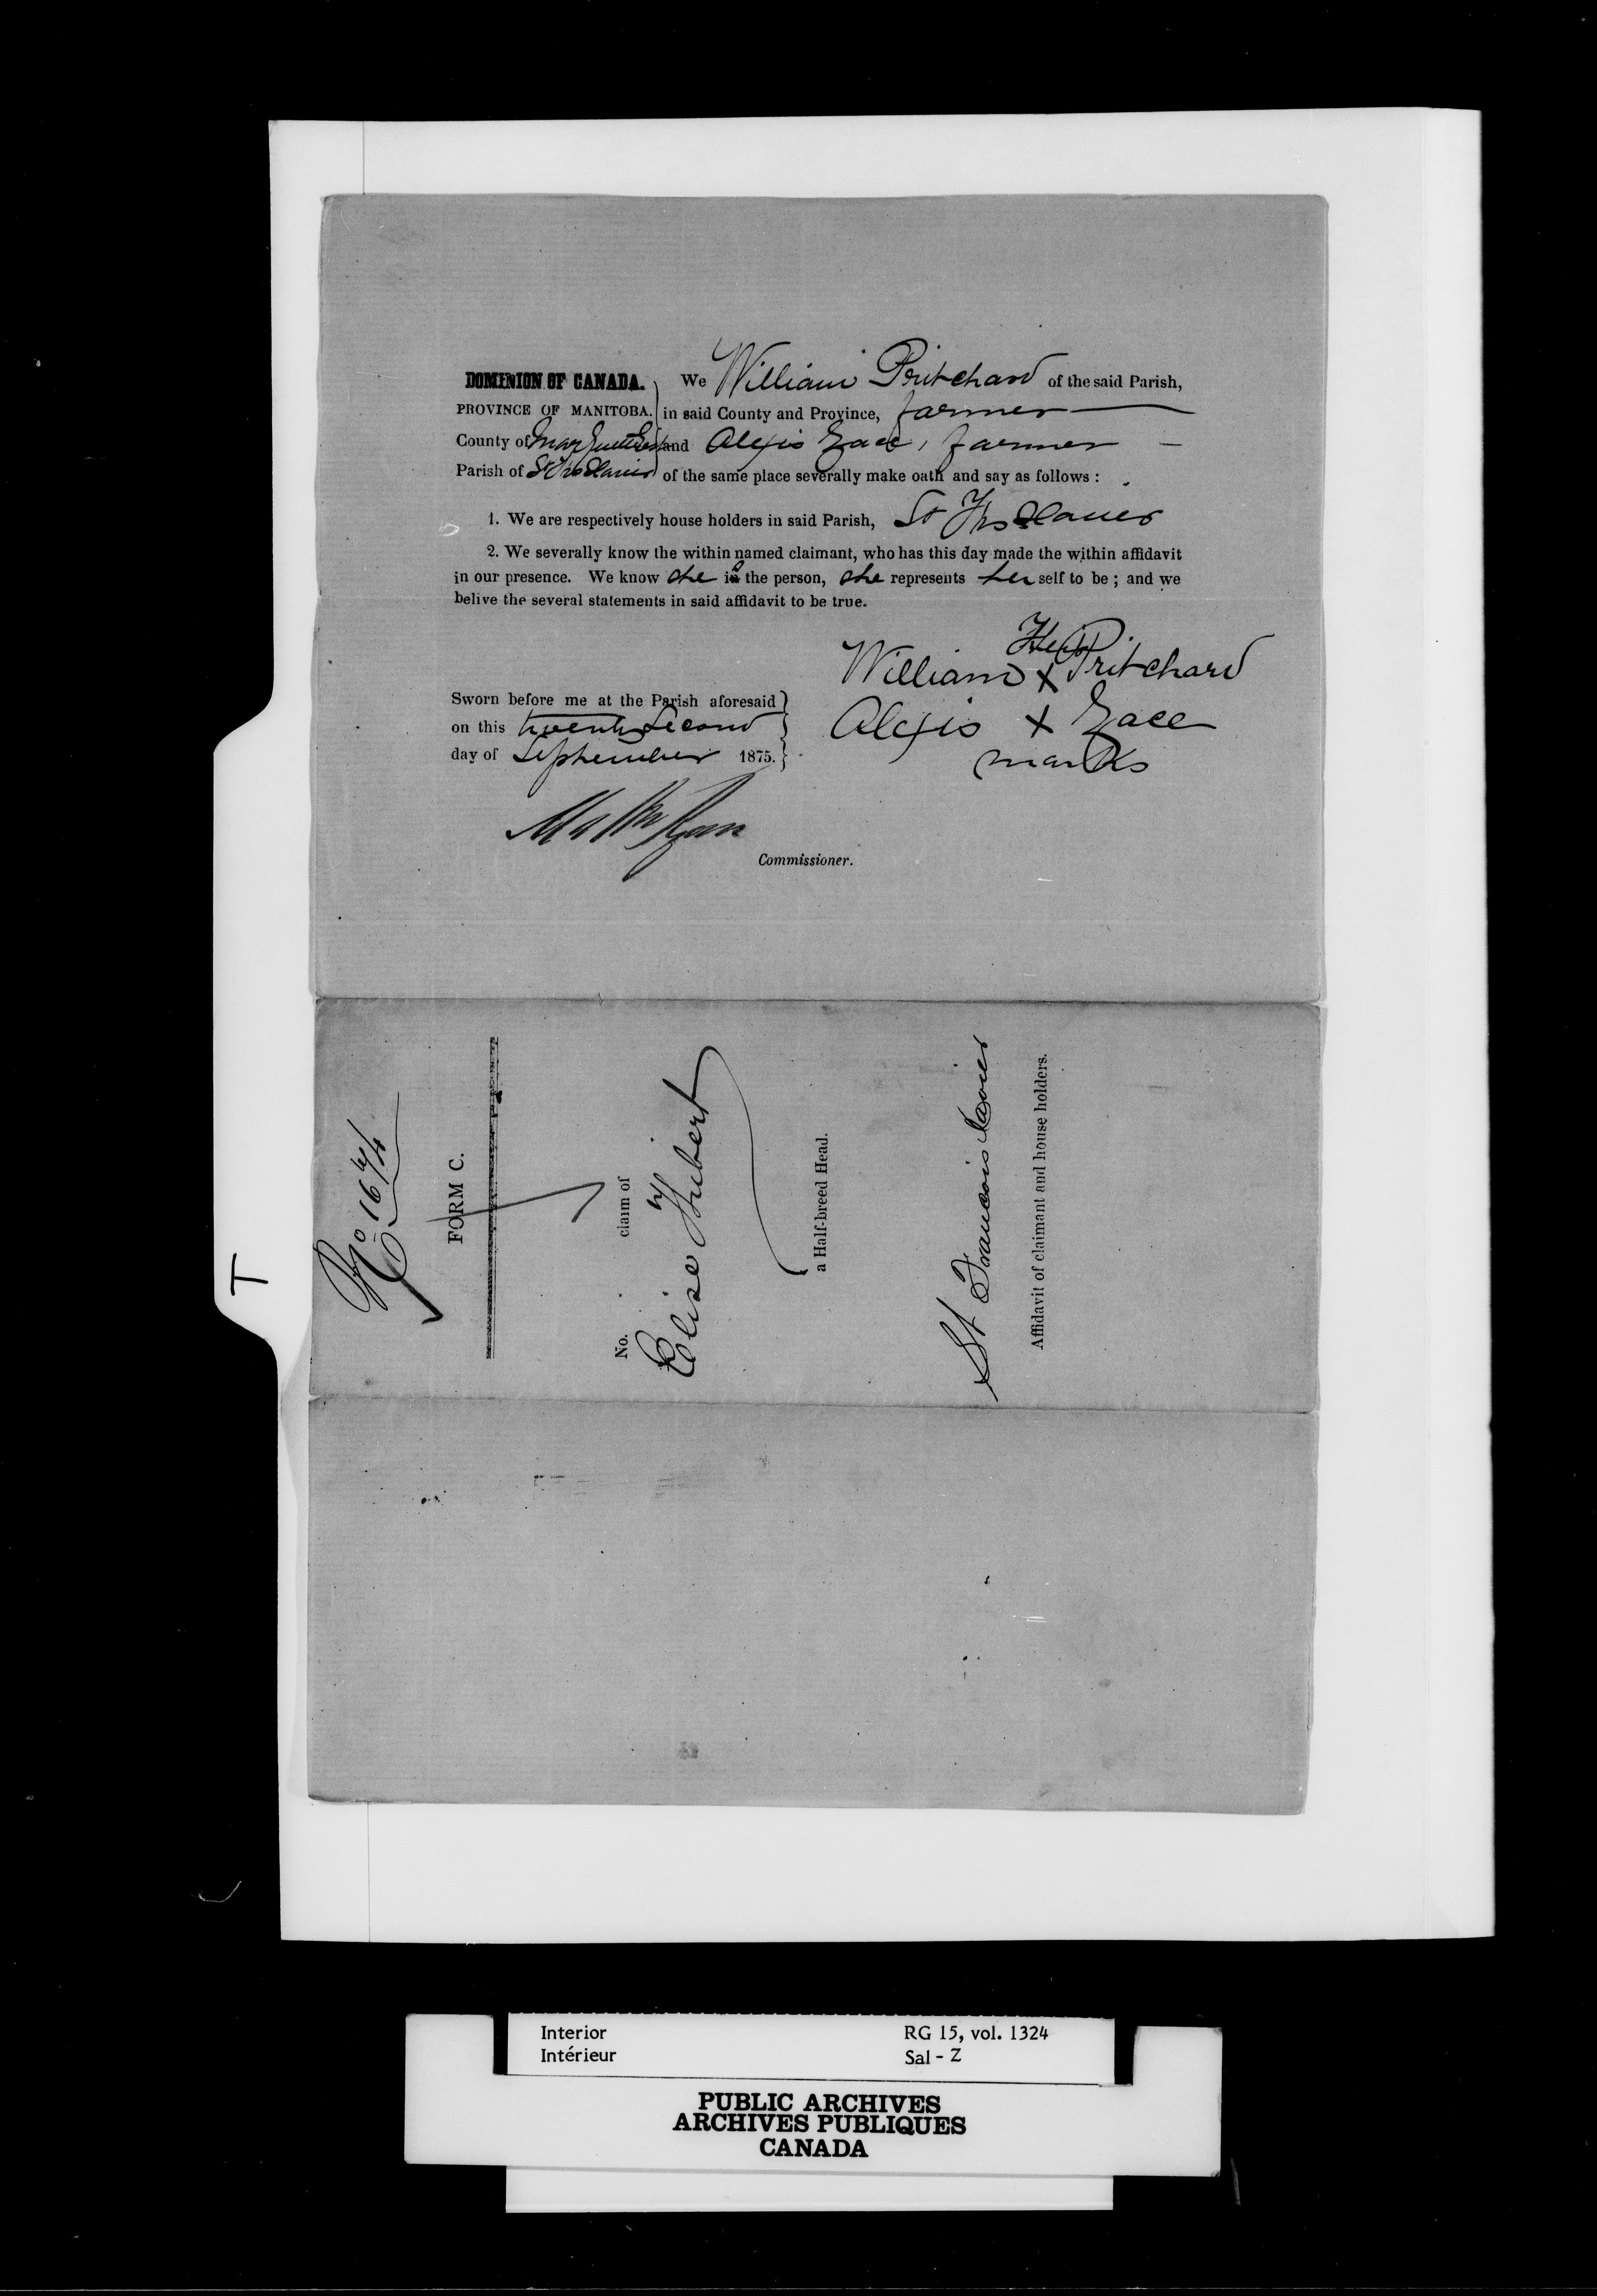 DOMINION OF CANADA. We William Pritchard of the said Parish,
PROVINCE OF MANITOBA. in said County and Province, farmer
County of Marquette East and Alexis Zace, farmer
Parish of St Frs Xavier of the same place severally make oath and say as follows :
1. We are respectively house holders in said Parish, St Frs Xavier
2. We severally know the within named claimant, who has this day made the within affidavit
in our presence. We know she is the person, she represents her self to be ; and we
belive the several statements in said affidavit to be true.
Their
William X Pritchard
Sworn before me at the Parish aforesaid
on this twenty second
day of September 1875.
Alexis X Zace
marks
Commissioner.
No 16
FORM C.
No. claim of
Elise Hubert
a Half-breed Head.
St Francois Xavier
Affidavit of claimant and house holders.
T
Interior RG 15, vol. 1324
Intérieur Sal - Z
PUBLIC ARCHIVES
ARCHIVES PUBLIQUES
CANADA